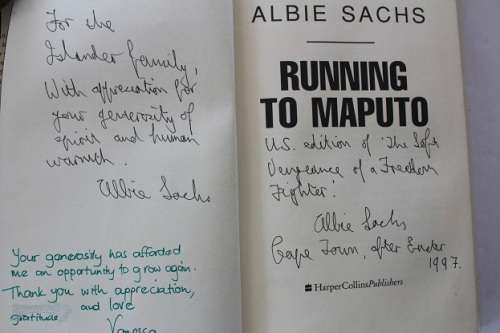 For the
Islander family,
With appreciation for
your generosity of
spirit and human
warmth.
Albie Sachs
Your generosity has afforded
me an opportunity to grow again.
Thank you with appreciation,
gratitude and love
Vanessa
ALBIE SACHS
RUNNING
TO MAPUTO
U.S. edition of 'The Soft
Vengeance of a Freedom
Fighter'.
Albie Sachs
Cape Town, after Easter
1997.
HarperCollinsPublishers